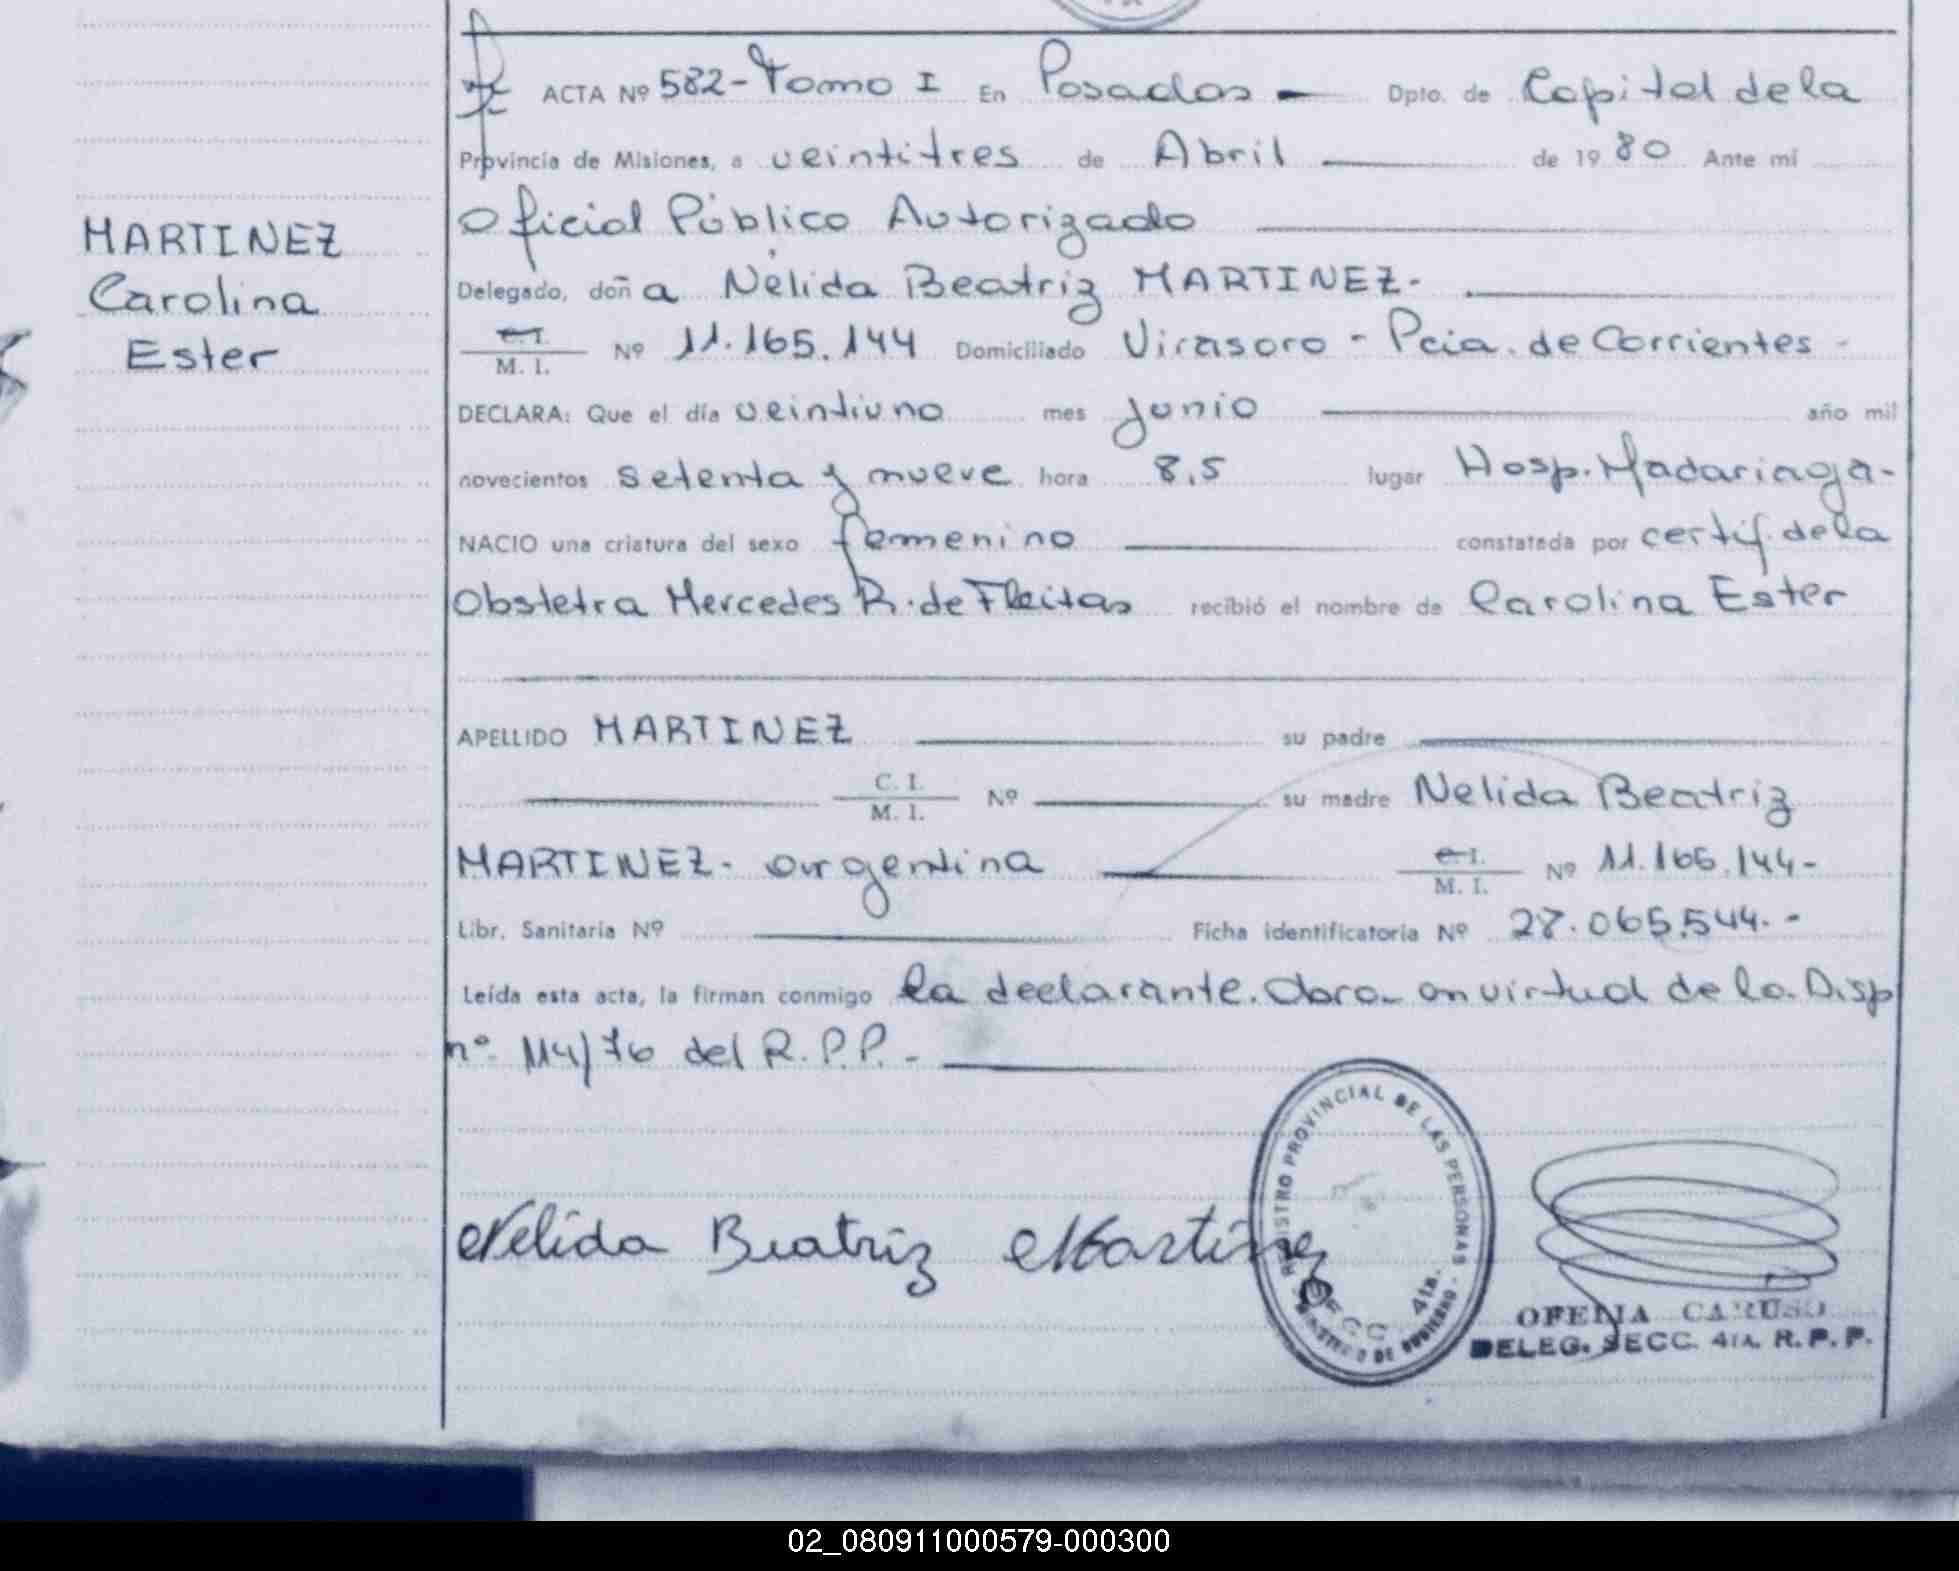 ACTA Nº 582 - Tomo I En Posadas - Dpto. de Capital de la
Provincia de Misiones, a veintitres de Abril de 1980 Ante mi
Oficial Público Autorizado
MARTINEZ
Carolina
Ester
Delegado, doña Nélida Beatriz MARTINEZ.
C.I.
M. I. Nº 11.165.144 Domiciliado Virasoro - Pcia. de Corrientes -
DECLARA: Que el día veintiuno mes Junio año mil
novecientos setenta y nueve hora 8,5 lugar Hosp. Madariaga -
NACIO una criatura del sexo femenino constatada por certif. de la
Obstetra Mercedes R. de Fleitas recibió el nombre de Carolina Ester
APELLIDO MARTINEZ su padre
C. I.
M. I. Nº su madre Nelida Beatriz
MARTINEZ - argentina C.I.
M. I. Nº 11.165.144 -
Libr. Sanitaria Nº Ficha identificatoria Nº 27.065.544. -
Leída esta acta, la firman conmigo la declarante. Labra en virtud de la Disp
nº 114/76 del R.P.P. -
Nelida Beatriz Martinez
REGISTRO PROVINCIAL DE LAS PERSONAS
SECC 4ta.
MINISTERIO DE GOBIERNO
OFELIA CARUSO
DELEG. SECC. 4TA. R. P. P.
02_080911000579-000300